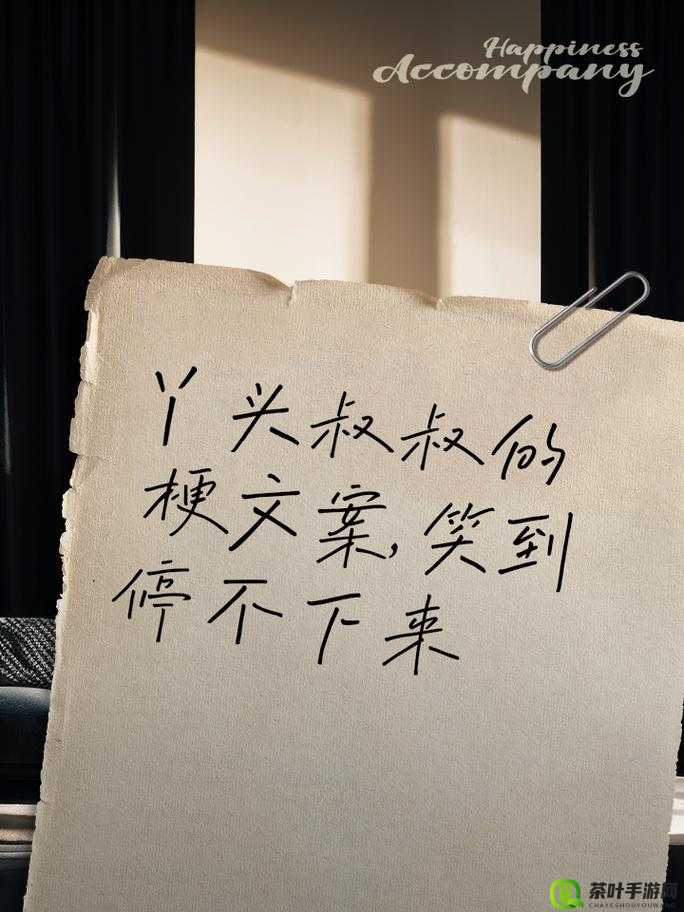 Happiness
Accompany
丫头叔叔的
梗文案,笑到
停不下来
茶叶手游网
CHAYESHOUYOUWANG